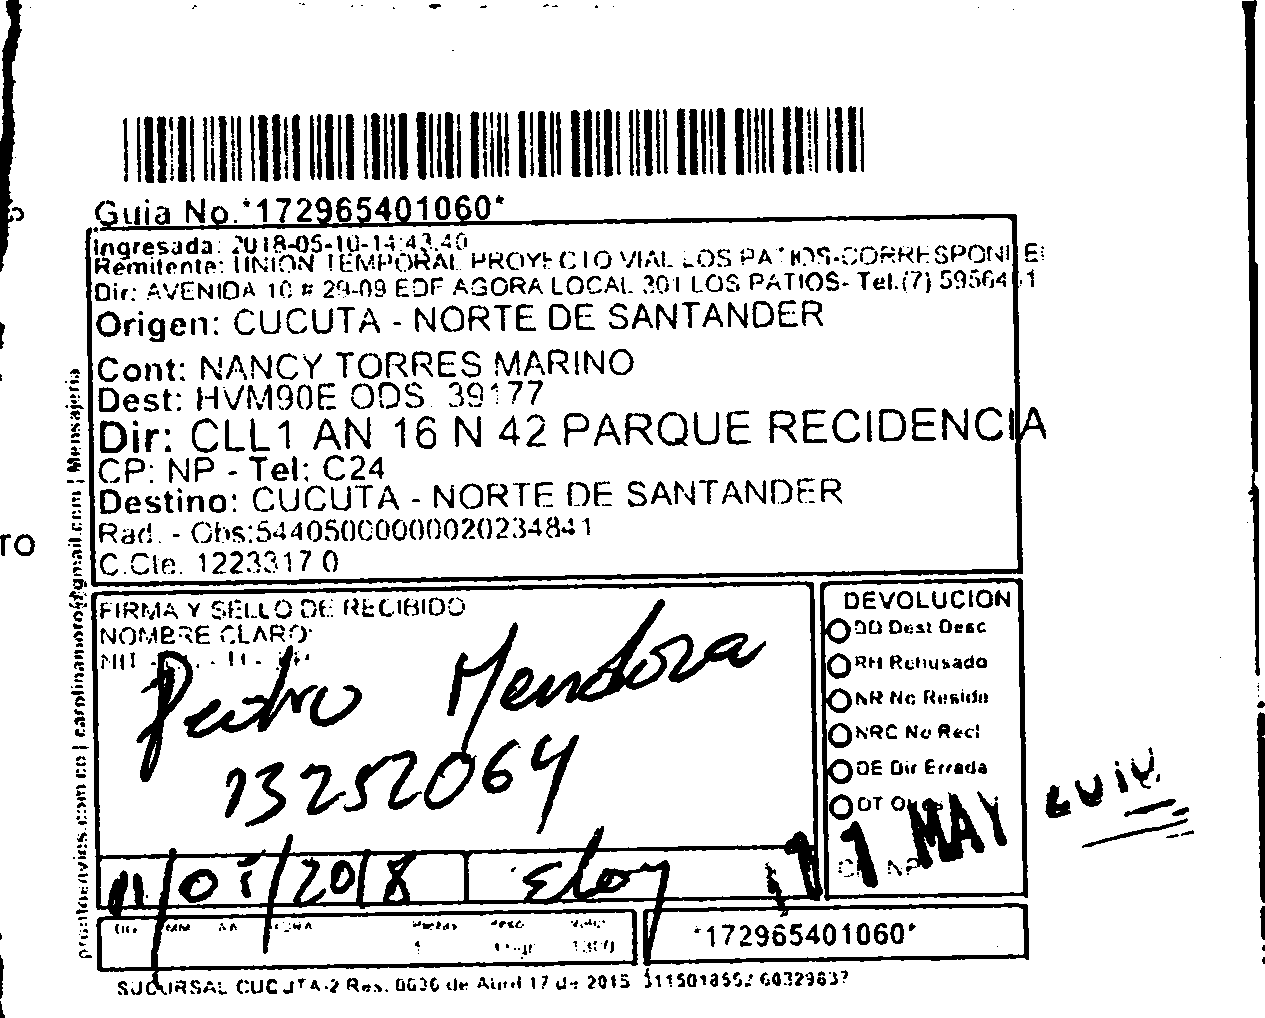 Guia No.*172965401060*
Ingresada: 2018-05-10-14:43:40
Remitente: UNION TEMPORAL PROYECTO VIAL LOS PATIOS-CORRESPONDE
Dir: AVENIDA 10 # 29-09 EDF AGORA LOCAL 301 LOS PATIOS- Tel.(7) 5956411
Origen: CUCUTA - NORTE DE SANTANDER
Cont: NANCY TORRES MARINO
Dest: HVM90E ODS. 39177
Dir: CLL1 AN 16 N 42 PARQUE RECIDENCIA
CP: NP - Tel: C24
Destino: CUCUTA - NORTE DE SANTANDER
Rad. - Obs:54405000000020234841
C.Cte. 1223317 0
| Mensajeria
TO
FIRMA Y SELLO DE RECIBIDO
NOMBRE CLARO:
Pedro Mendoza
13252064
DEVOLUCION
DD Dest Desc
RH Rehusado
NR No Reside
NRC No Recl
DE Dir Errada
OT
11 MAY 2018
11/05/2018
Eloy
DIA MM AA HORA
Piezas Peso Valor
1 1300
*172965401060*
SUCURSAL CUCUTA-2 Res. 0636 de Abril 17 de 2015 3115018552 60329837